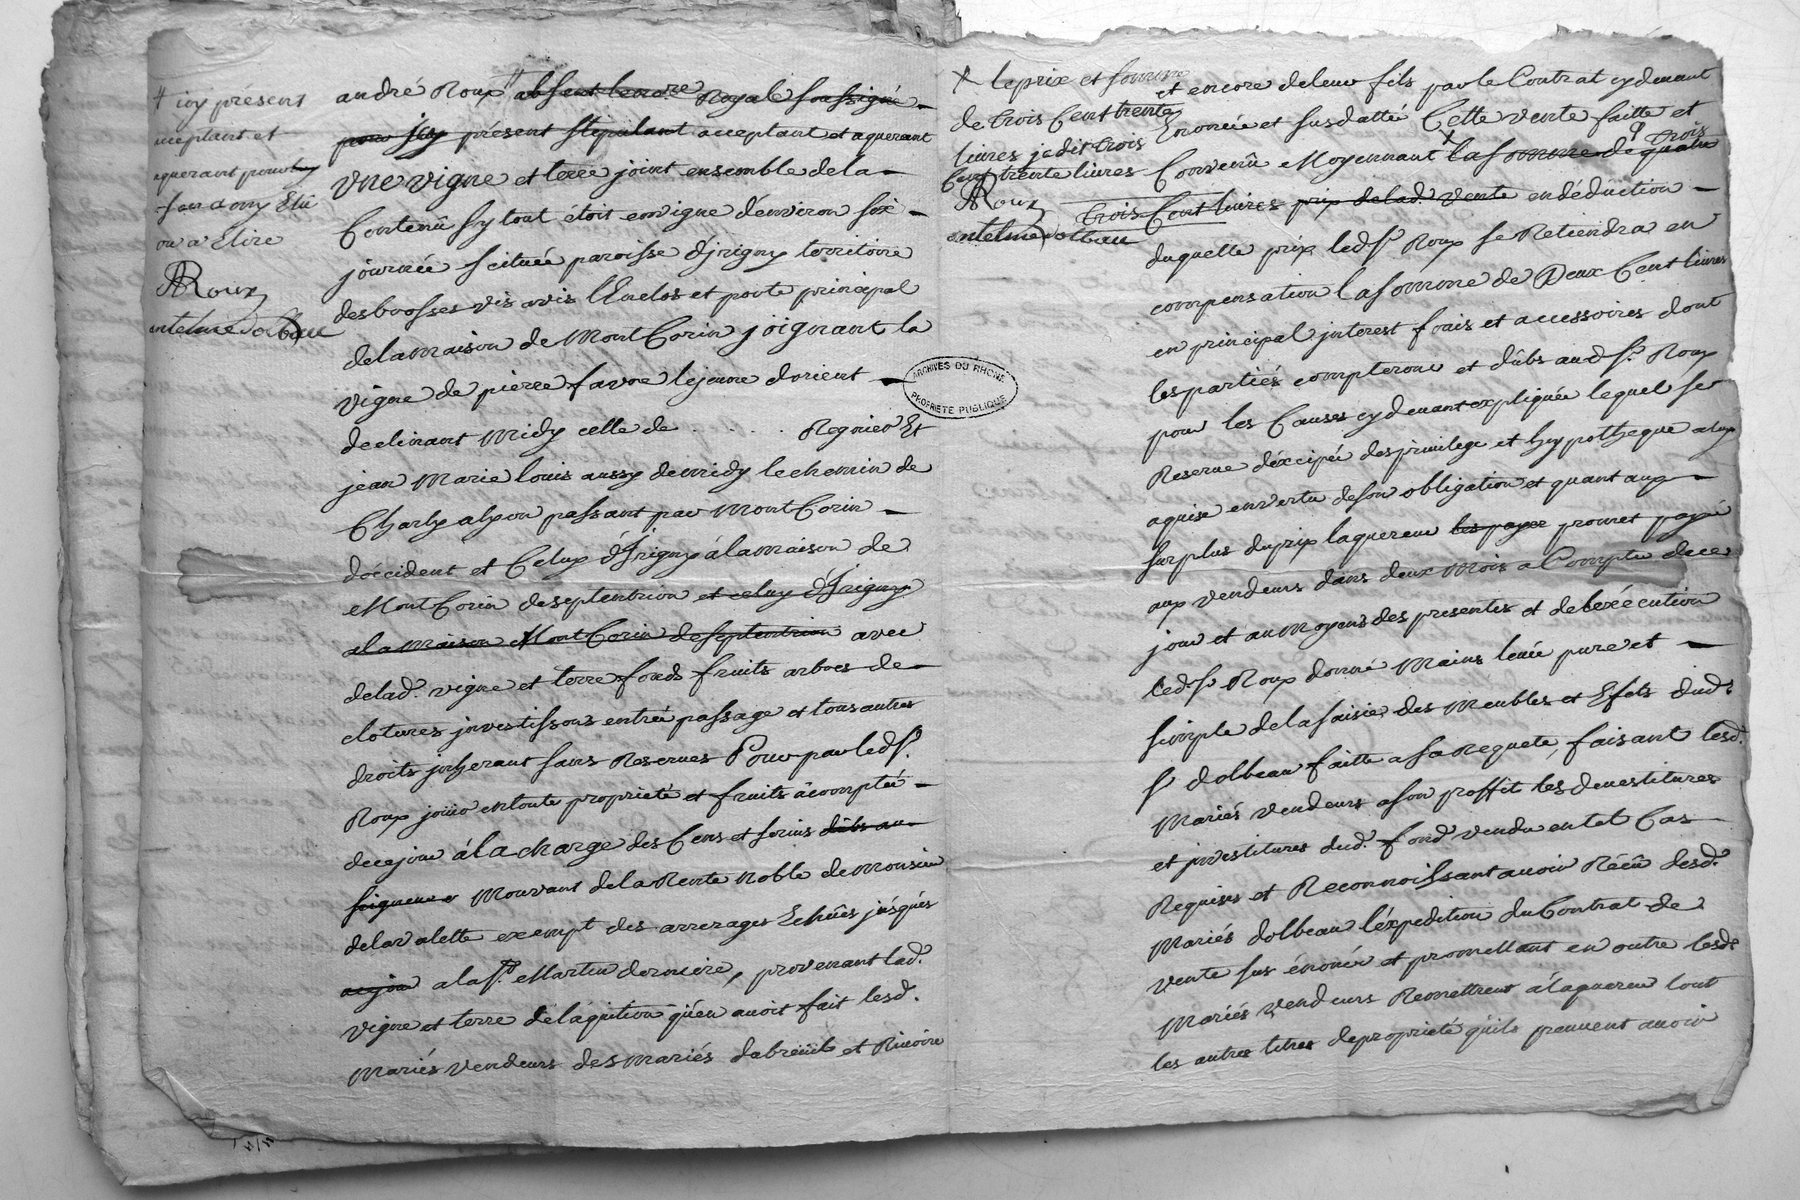 # icy présent
acceptant et
aquerant pour luy
son amy Elû
ou a Elire
ARoux
antelmedolbeau
andré Roux # absent le no.re Royale soussigné
pour luy présent stipulant acceptant et aquerant
une vigne et terre joint ensemble de la
Contenû sy tout étoit en vigne d'environ six
journée scituée paroisse d'jrigny territoire
des brosses vis avis l'Enclos et porte principal
de la maison de MontCorin joignant la
vigne de pierre favre le jeune d'orient
declinant Midy celle de . . . . . Regnier Et
jean Marie louis aussy de midy le chemin de
Charly a lyon passant par MontCorin
d'occident et Celuy d'Jrigny à la maison de
MontCorin de septentrion et celuy d'Jrigny
a la maison MontCorin de septentrion avec
de lad. vigne et terre fonds fruits arbres de
clotures jnvestissons entrée passage et tous autres
droits jnherant sans Reserves Pour par led. sr.
Roux jouir en toute proprieté et fruits à compter
de ce jour à la charge des Cens et servis dûbs au
seigneur Mouvant de la Rente noble de monsieur
delavalette exempt des arrerages Echûes jusques
a la St. Martin derniere, provenant lad.
vigne et terre de l'aquition qu'en avoit fait lesd.
Mariés vendeurs des mariés dabreüil et Rivoire
ARCHIVES DU RHÔNE
PROPRIÉTÉ PUBLIQUE
X le prix et somme
de trois Cent trente
livres je dit trois
Cent trente livres
ARoux
antelmedolbeau
et encore de leur fils par le Contrat cy devant
Enoncée et susdatté Cette vente faitte et
Convenû Moyennant X la somme de quatre
trois
trois Cent livres prix de lad. vente en déduction
duquelle prix led. Sr. Roux se Retiendra en
compensation la somme de Deux Cent livres
en principal jnterest frais et accessoires dont
les partiés compterons et dûbs aud. Sr. Roux
pour les Causes cy devant expliquée lequel se
Reserve d'éxcipée des privilege et hypotheque a luy
aquise en vertu de son obligation et quant aux
surplus du prix laquereur les payer promet payé
aux vendeurs dans deux Mois a Compter de ce
jour et au Moyens des presentes et de l'exécution
led. Sr. Roux donne Mains levée pure et
simple de la saisie des Meubles et Efets dud.
Sr. dolbeau faitte a sa Requete, faisant lesd.
Mariés vendeurs a son proffit les devestitures
et jnvestitures dud. fond vendu en tel Cas
Requises et Reconnoissant avoir Réçu desd.
Mariés dolbeau l'éxpedition du Contrat de
vente sus énoncée et promettant en outre lesd.
Mariés vendeurs Remettreut à l'aquereur tout
les autres titres de proprieté qu'ils peuvent avoir